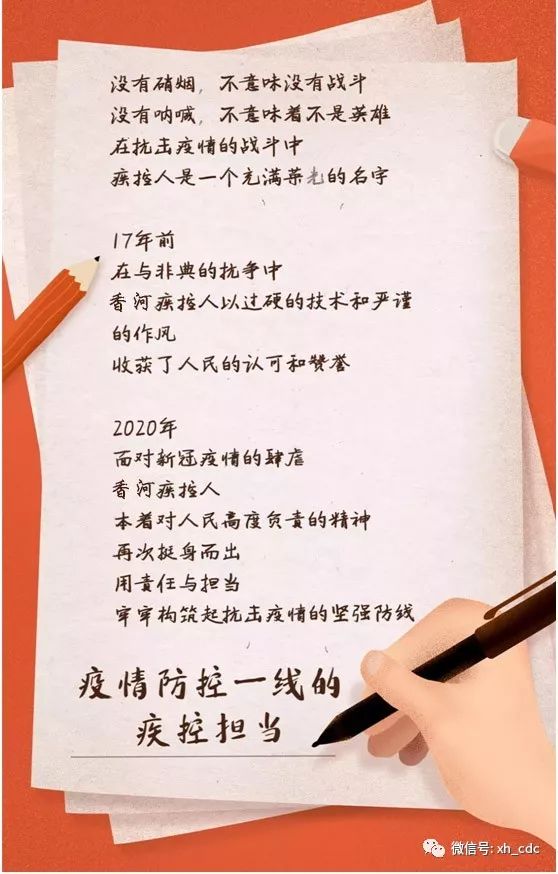 没有硝烟，不意味没有战斗
没有呐喊，不意味着不是英雄
在抗击疫情的战斗中
疾控人是一个充满荣光的名字
17年前
在与非典的抗争中
香河疾控人以过硬的技术和严谨
的作风
收获了人民的认可和赞誉
2020年
面对新冠疫情的肆虐
香河疾控人
本着对人民高度负责的精神
再次挺身而出
用责任与担当
牢牢构筑起抗击疫情的坚强防线
疫情防控一线的
疾控担当
微信号: xh_cdc